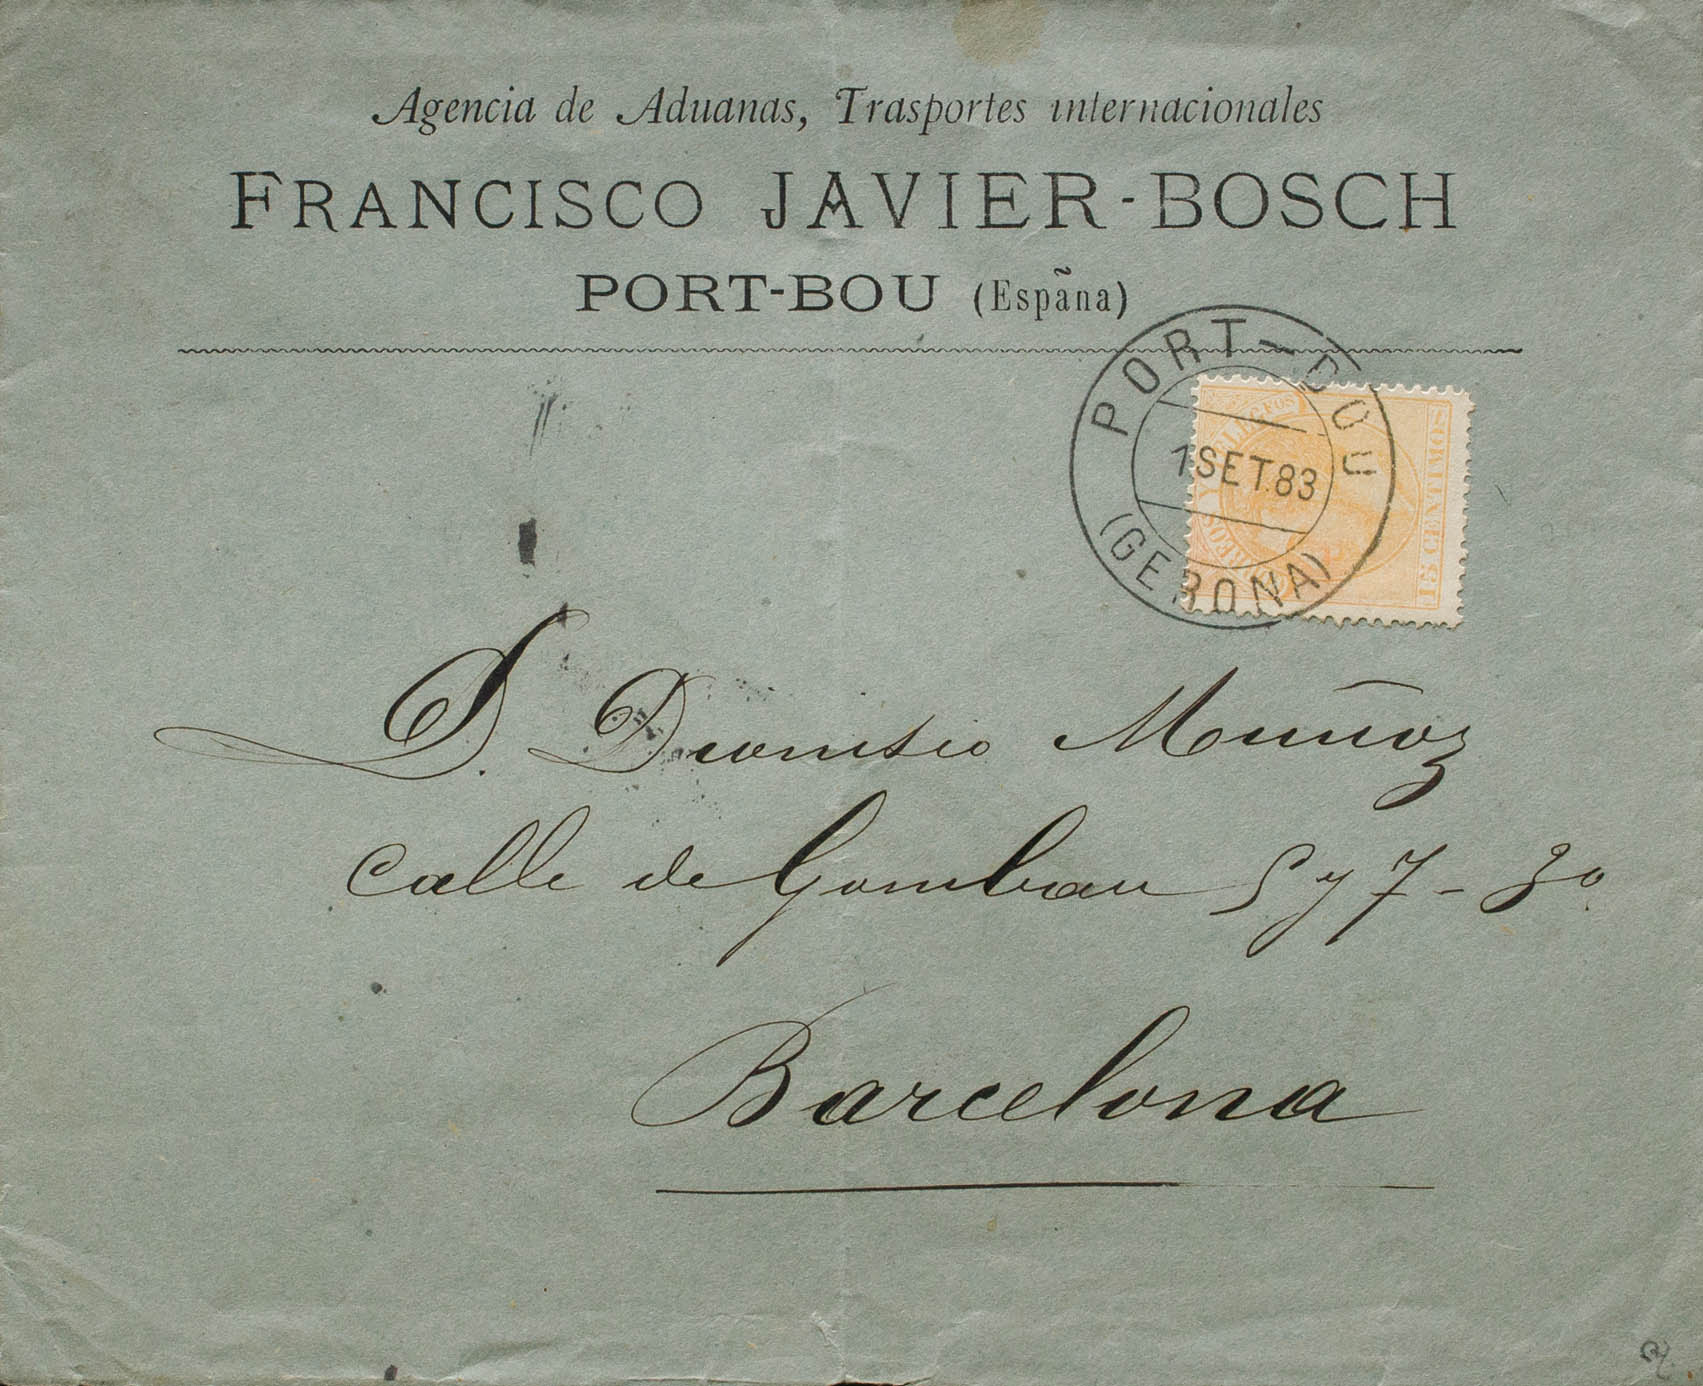 Agencia de Aduanas, Trasportes internacionales
FRANCISCO JAVIER-BOSCH
PORT-BOU (Espãna)
PORT-BOU
1 SET.83
(GERONA)
CORREOS Y TELEGFOS
15 CENTIMOS
D. Dionisio Muñoz
Calle de Gombau 5 y 7 - 3o
Barcelona